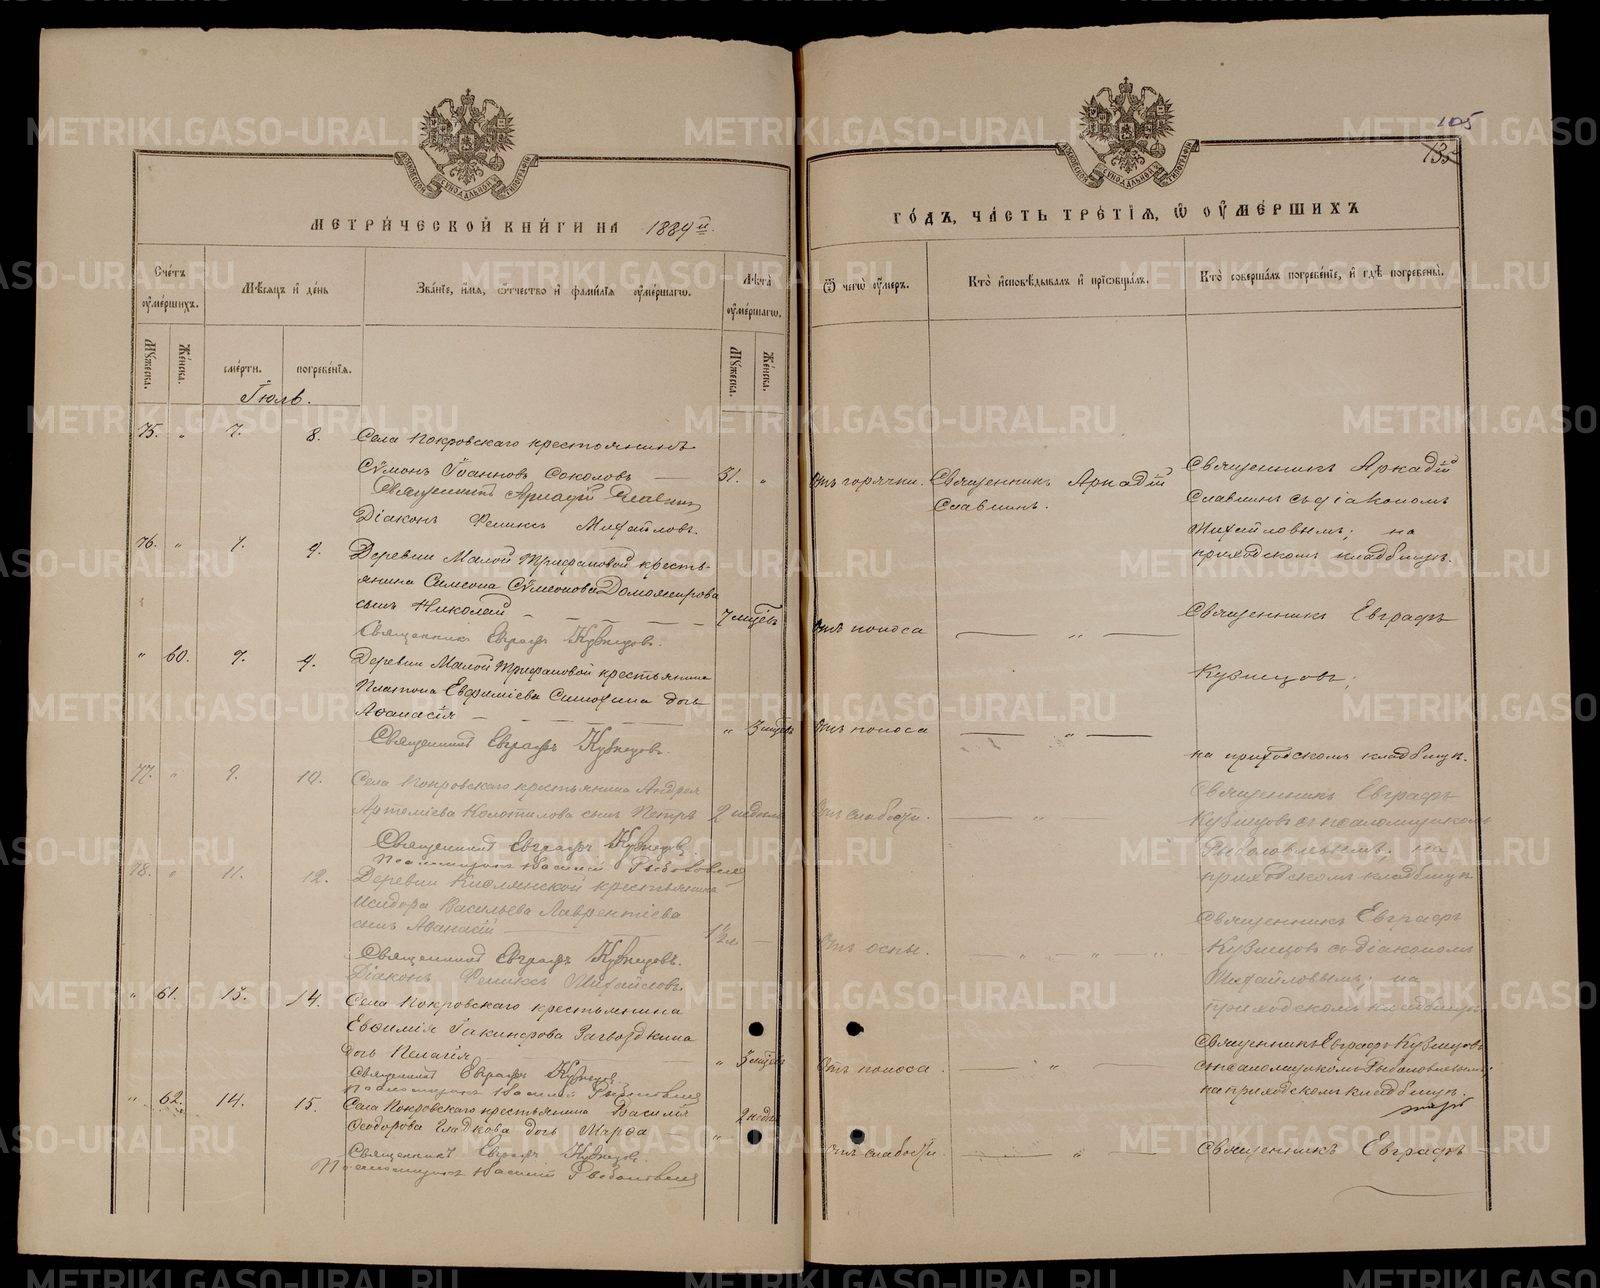 МЕТРИЧЕСКОЙ КНИГИ НА 1884й
Счетъ оумершихъ.
Мужеска.
Женска.
Мѣсяцъ и день
смерти.
погребенія.
Званіе, имя, отчество и фамилія оумершаго.
Лѣта оумершаго.
Мужеска.
Женска.
Іюль.
75. " 7. 8. Села Покровскаго крестьянинъ
Сѵмонъ Іоанновъ Соколовъ — 31. "
Священникъ Аркадій Славнинъ
Діаконъ Феликсъ Михайловъ.
76. " 7. 9. Деревни Малой Трифановой кресть-
янина Симеона Сѵмеонова Доможирова
сынъ Николай — 7 мцевъ
Священникъ Евграфъ Кузнецовъ.
" 60. 9. 9. Деревни Малой Трифановой крестьянина
Платона Евфиміева дочь
Афанасія — " 3 мцевъ
Священникъ Евграфъ Кузнецовъ.
77. " 9. 10. Села Покровскаго крестьянина Андрея
Артеміева Колотилова сынъ Петръ 2 недѣли
Священникъ Евграфъ Кузнецовъ
Псаломщикъ Василій
78. " 11. 12. Деревни крестьянина
Исидора Васильева Лаврентіева
сынъ Афанасій 1½ —
Священникъ Евграфъ Кузнецовъ.
Діаконъ Феликсъ Михайловъ.
" 61. 13. 14. Села Покровскаго крестьянина
Евфимія Іакинфова Загвоздкина
дочь Пелагія " 3 мцевъ
Священникъ Евграфъ Кузнецовъ
Псаломщикъ Василій
" 62. 14. 15. Села Покровскаго крестьянина Василія
Феодорова Гладкова дочь Марфа " 2 недѣли
Священникъ Евграфъ Кузнецовъ.
Псаломщикъ Василій
105
135
ГОДЪ, ЧАСТЬ ТРЕТІЯ, Ѡ ОУМЕРШИХЪ
Ѿ чегѡ оумеръ.
Кто исповѣдывалъ и пріобщалъ.
Кто совершалъ погребеніе, и гдѣ погребены.
Отъ горячки. Священникъ Аркадій
Славнинъ.
Священникъ Аркадій
Славнинъ съ діакономъ
Михайловымъ; на
приходскомъ кладбищѣ.
Отъ поноса — " —
Священникъ Евграфъ
Кузнецовъ;
Отъ поноса — " —
на приходскомъ кладбищѣ.
Отъ слабости. — " —
Священникъ Евграфъ
Кузнецовъ съ псаломщикомъ
на
приходскомъ кладбищѣ
Отъ оспы. — " —
Священникъ Евграфъ
Кузнецовъ съ діакономъ
Михайловымъ; на
приходскомъ кладбищѣ
Отъ поноса — " —
Священникъ Евграфъ Кузнецовъ
съ псаломщикомъ
на приходскомъ кладбищѣ.
Отъ слабости. — " —
Священникъ Евграфъ
METRIKI.GASO-URAL.RU